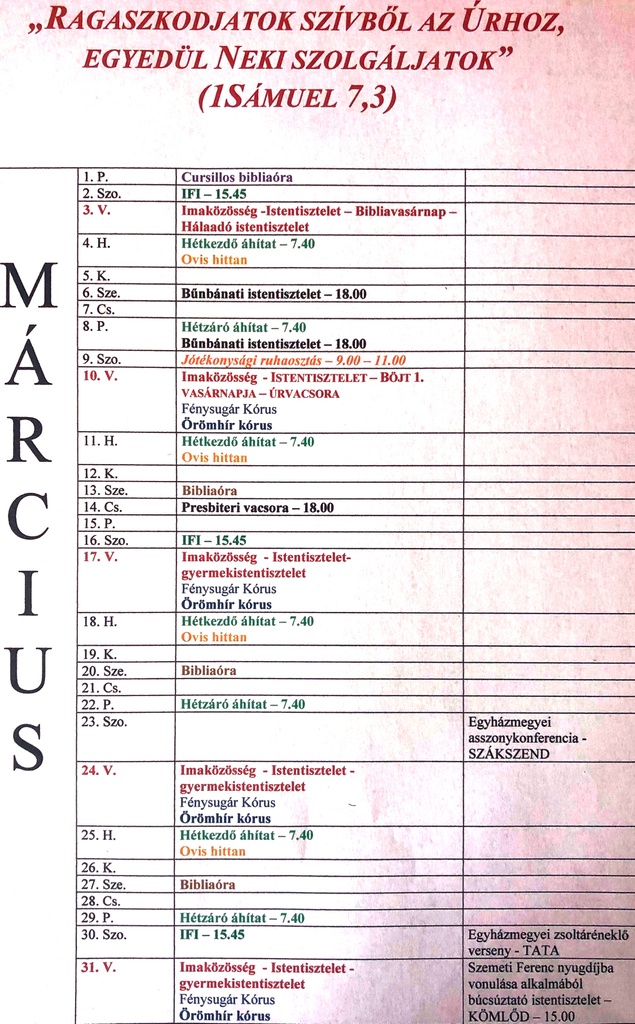 „RAGASZKODJATOK SZÍVBŐL AZ ÚRHOZ,
EGYEDÜL NEKI SZOLGÁLJATOK”
(1SÁMUEL 7,3)
MÁRCIUS
1. P. Cursillos bibliaóra
2. Szo. IFI – 15.45
3. V. Imaközösség -Istentisztelet – Bibliavasárnap –
Hálaadó istentisztelet
4. H. Hétkezdő áhítat – 7.40
Ovis hittan
5. K.
6. Sze. Bűnbánati istentisztelet – 18.00
7. Cs.
8. P. Hétzáró áhítat – 7.40
Bűnbánati istentisztelet – 18.00
9. Szo. Jótékonysági ruhaosztás – 9.00 – 11.00
10. V. Imaközösség - ISTENTISZTELET – BÖJT 1.
VASÁRNAPJA – ÚRVACSORA
Fénysugár Kórus
Örömhír kórus
11. H. Hétkezdő áhítat – 7.40
Ovis hittan
12. K.
13. Sze. Bibliaóra
14. Cs. Presbiteri vacsora – 18.00
15. P.
16. Szo. IFI – 15.45
17. V. Imaközösség - Istentisztelet-
gyermekistentisztelet
Fénysugár Kórus
Örömhír kórus
18. H. Hétkezdő áhítat – 7.40
Ovis hittan
19. K.
20. Sze. Bibliaóra
21. Cs.
22. P. Hétzáró áhítat – 7.40
23. Szo. Egyházmegyei
asszonykonferencia -
SZÁKSZEND
24. V. Imaközösség - Istentisztelet -
gyermekistentisztelet
Fénysugár Kórus
Örömhír kórus
25. H. Hétkezdő áhítat – 7.40
Ovis hittan
26. K.
27. Sze. Bibliaóra
28. Cs.
29. P. Hétzáró áhítat – 7.40
30. Szo. IFI – 15.45 Egyházmegyei zsoltáréneklő
verseny - TATA
31. V. Imaközösség - Istentisztelet -
gyermekistentisztelet
Fénysugár Kórus
Örömhír kórus
Szemeti Ferenc nyugdíjba
vonulása alkalmából
búcsúztató istentisztelet –
KÖMLŐD – 15.00